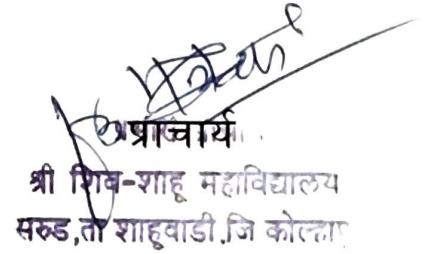 प्राचार्य
श्री शिव-शाहू महाविद्यालय
सरुड,ता शाहूवाडी,जि